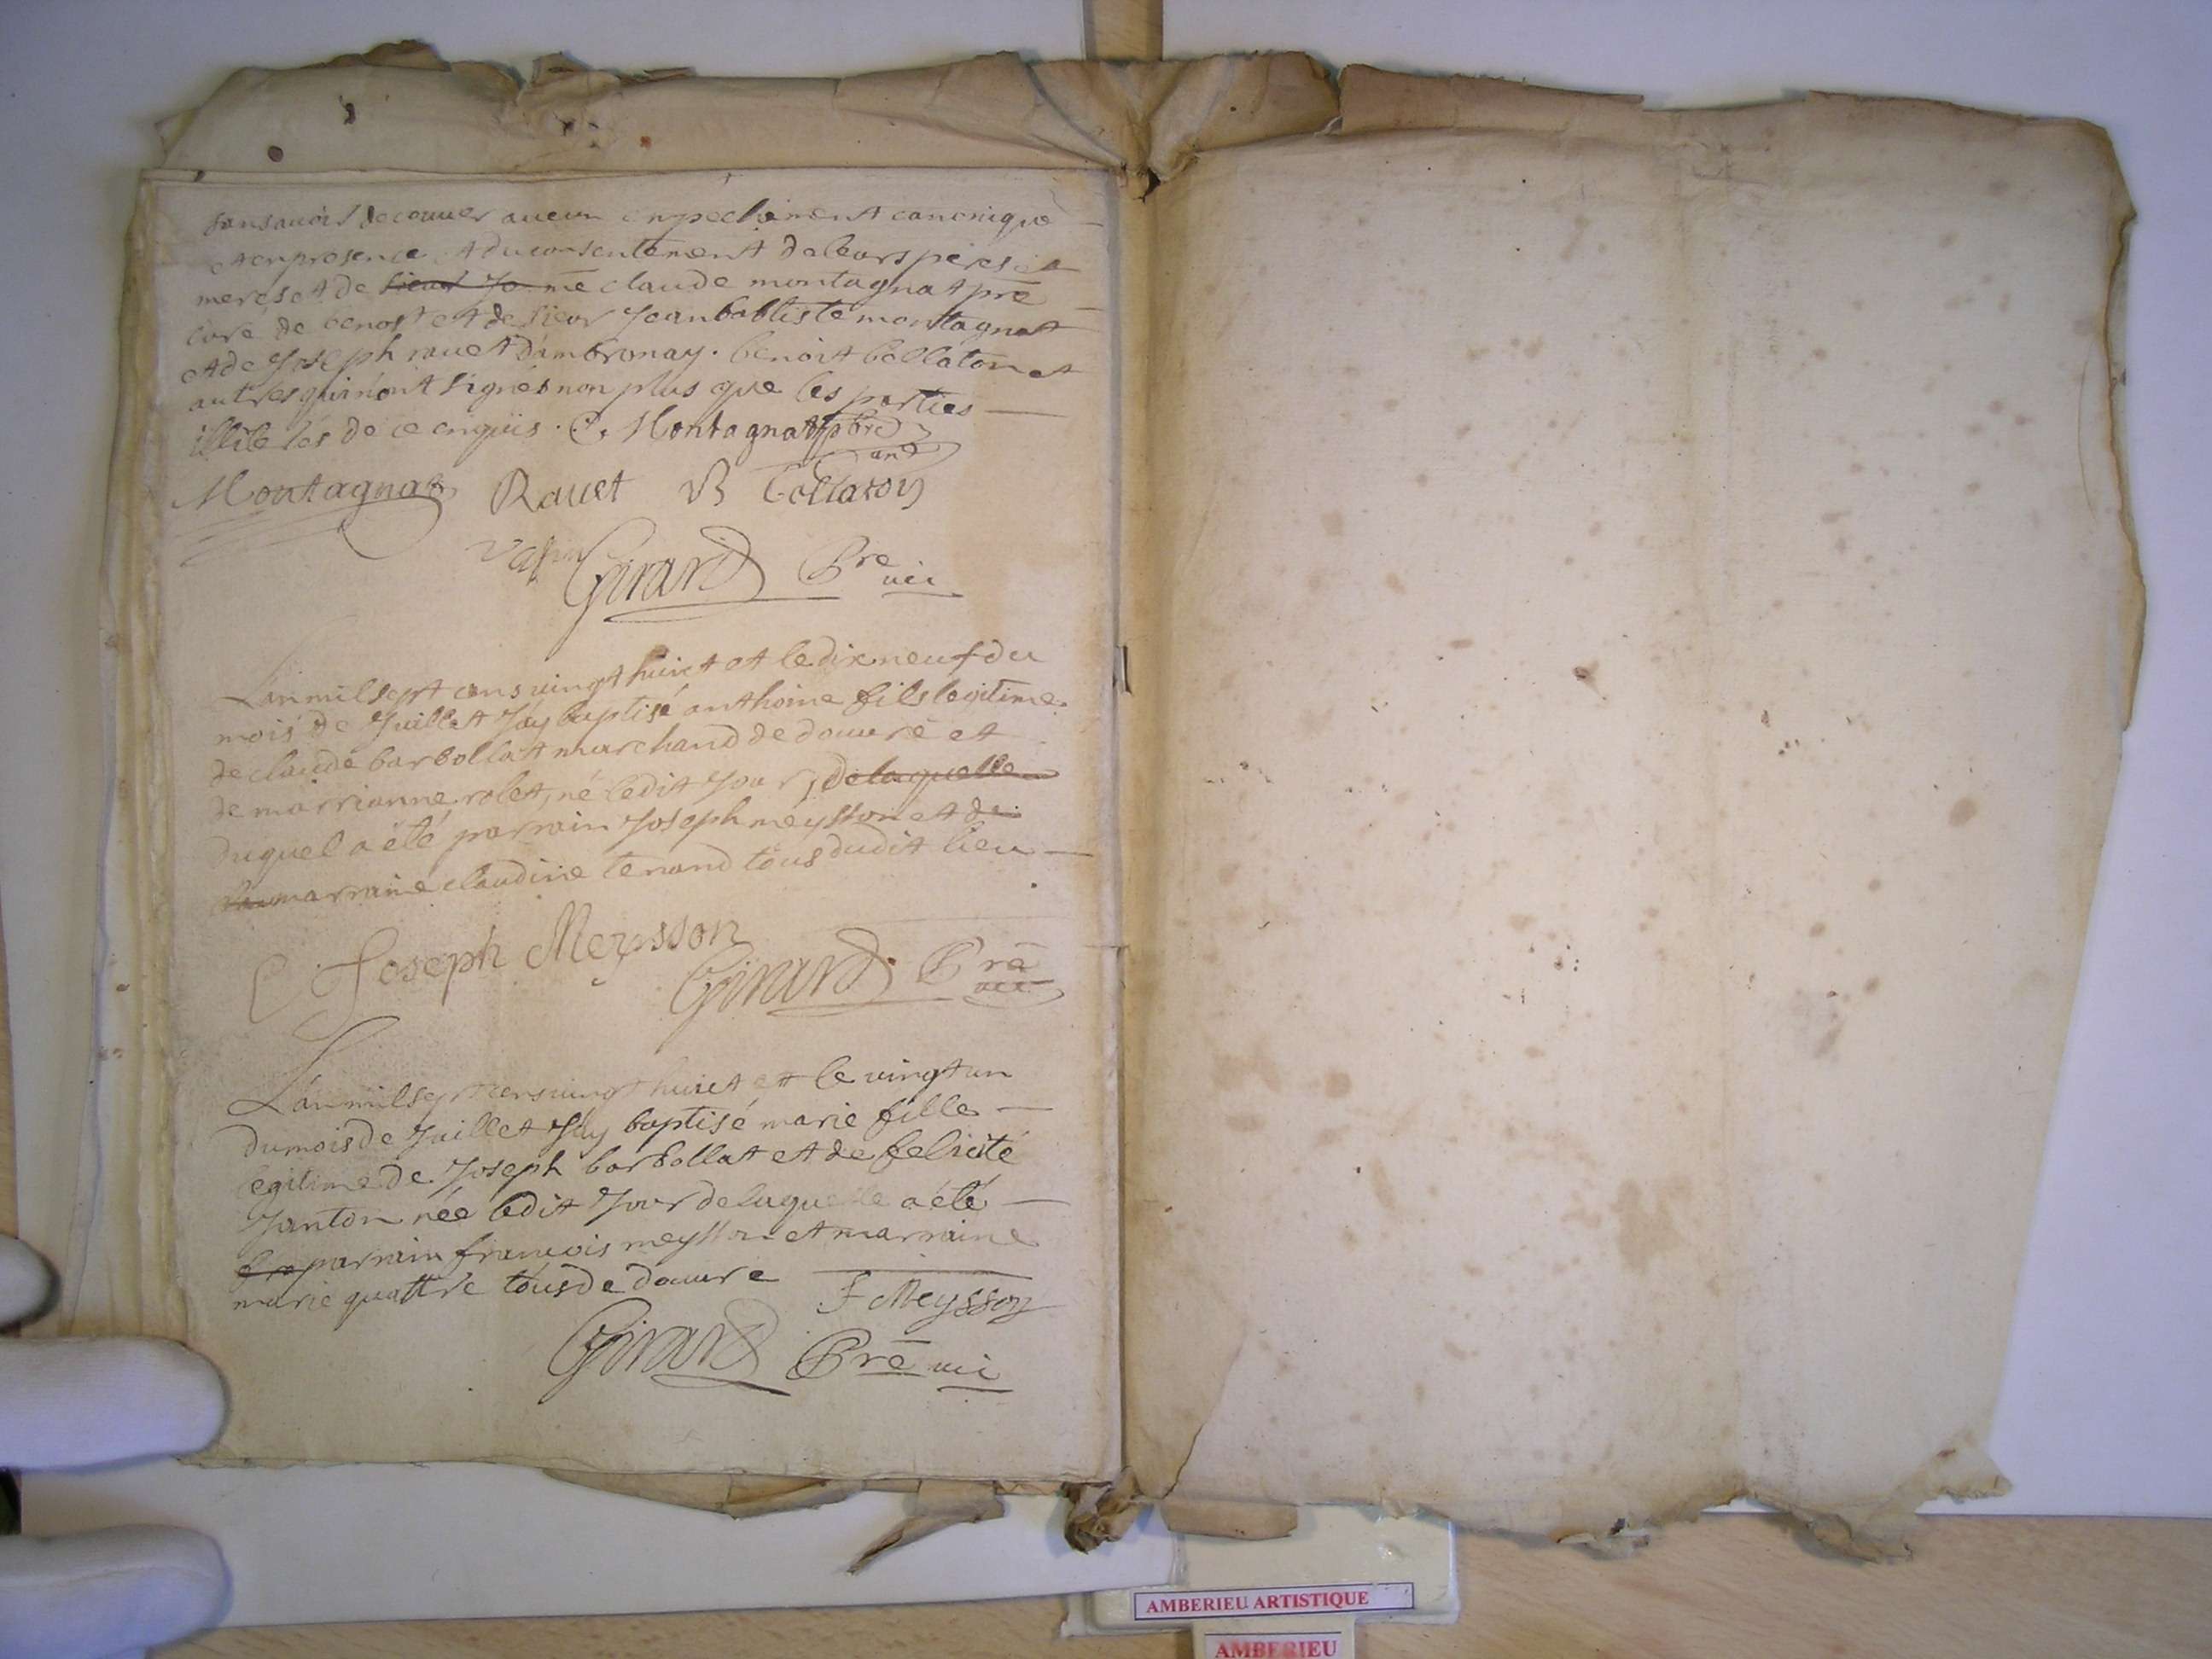 sans avoir decouver aucun enpechement canonique
et en presence et du consentement de leurs peres et
meres et de sieur Jo me claude montagnat pre
curé de benost et de sieur Jean babtiste montagnat
et de Joseph rauet dambronay. benoit bollaton et
autres qui nont signés non plus que les parties
illiterés de ce enquis. C. Montagnat pbre
Montagnat Rauet B Collaton
Girard Pre vic
L'an mil sept cens vingt huict et le dix neuf du
mois de Juillet Jay baptisé anthoine fils legitime
de claude barbollat marchand de douure et
de marrianne rolet, né ledit Jour, de laquelle
duquel a été parrain Joseph meysson et de
marraine claudine tenand tous dudit lieu
Joseph Meysson
Girard Pre vic
L'an mil sept cens vingt huict et le vingt un
du mois de Juillet Jay baptisé marie fille
legitime de Joseph barbollat et de felicité
Janton née ledit Jour de laquelle a été
parrain francois meysson et marraine
marie quattre tous de douure
F Meysson
Girard Pre vic
AMBERIEU ARTISTIQUE
AMBERIEU